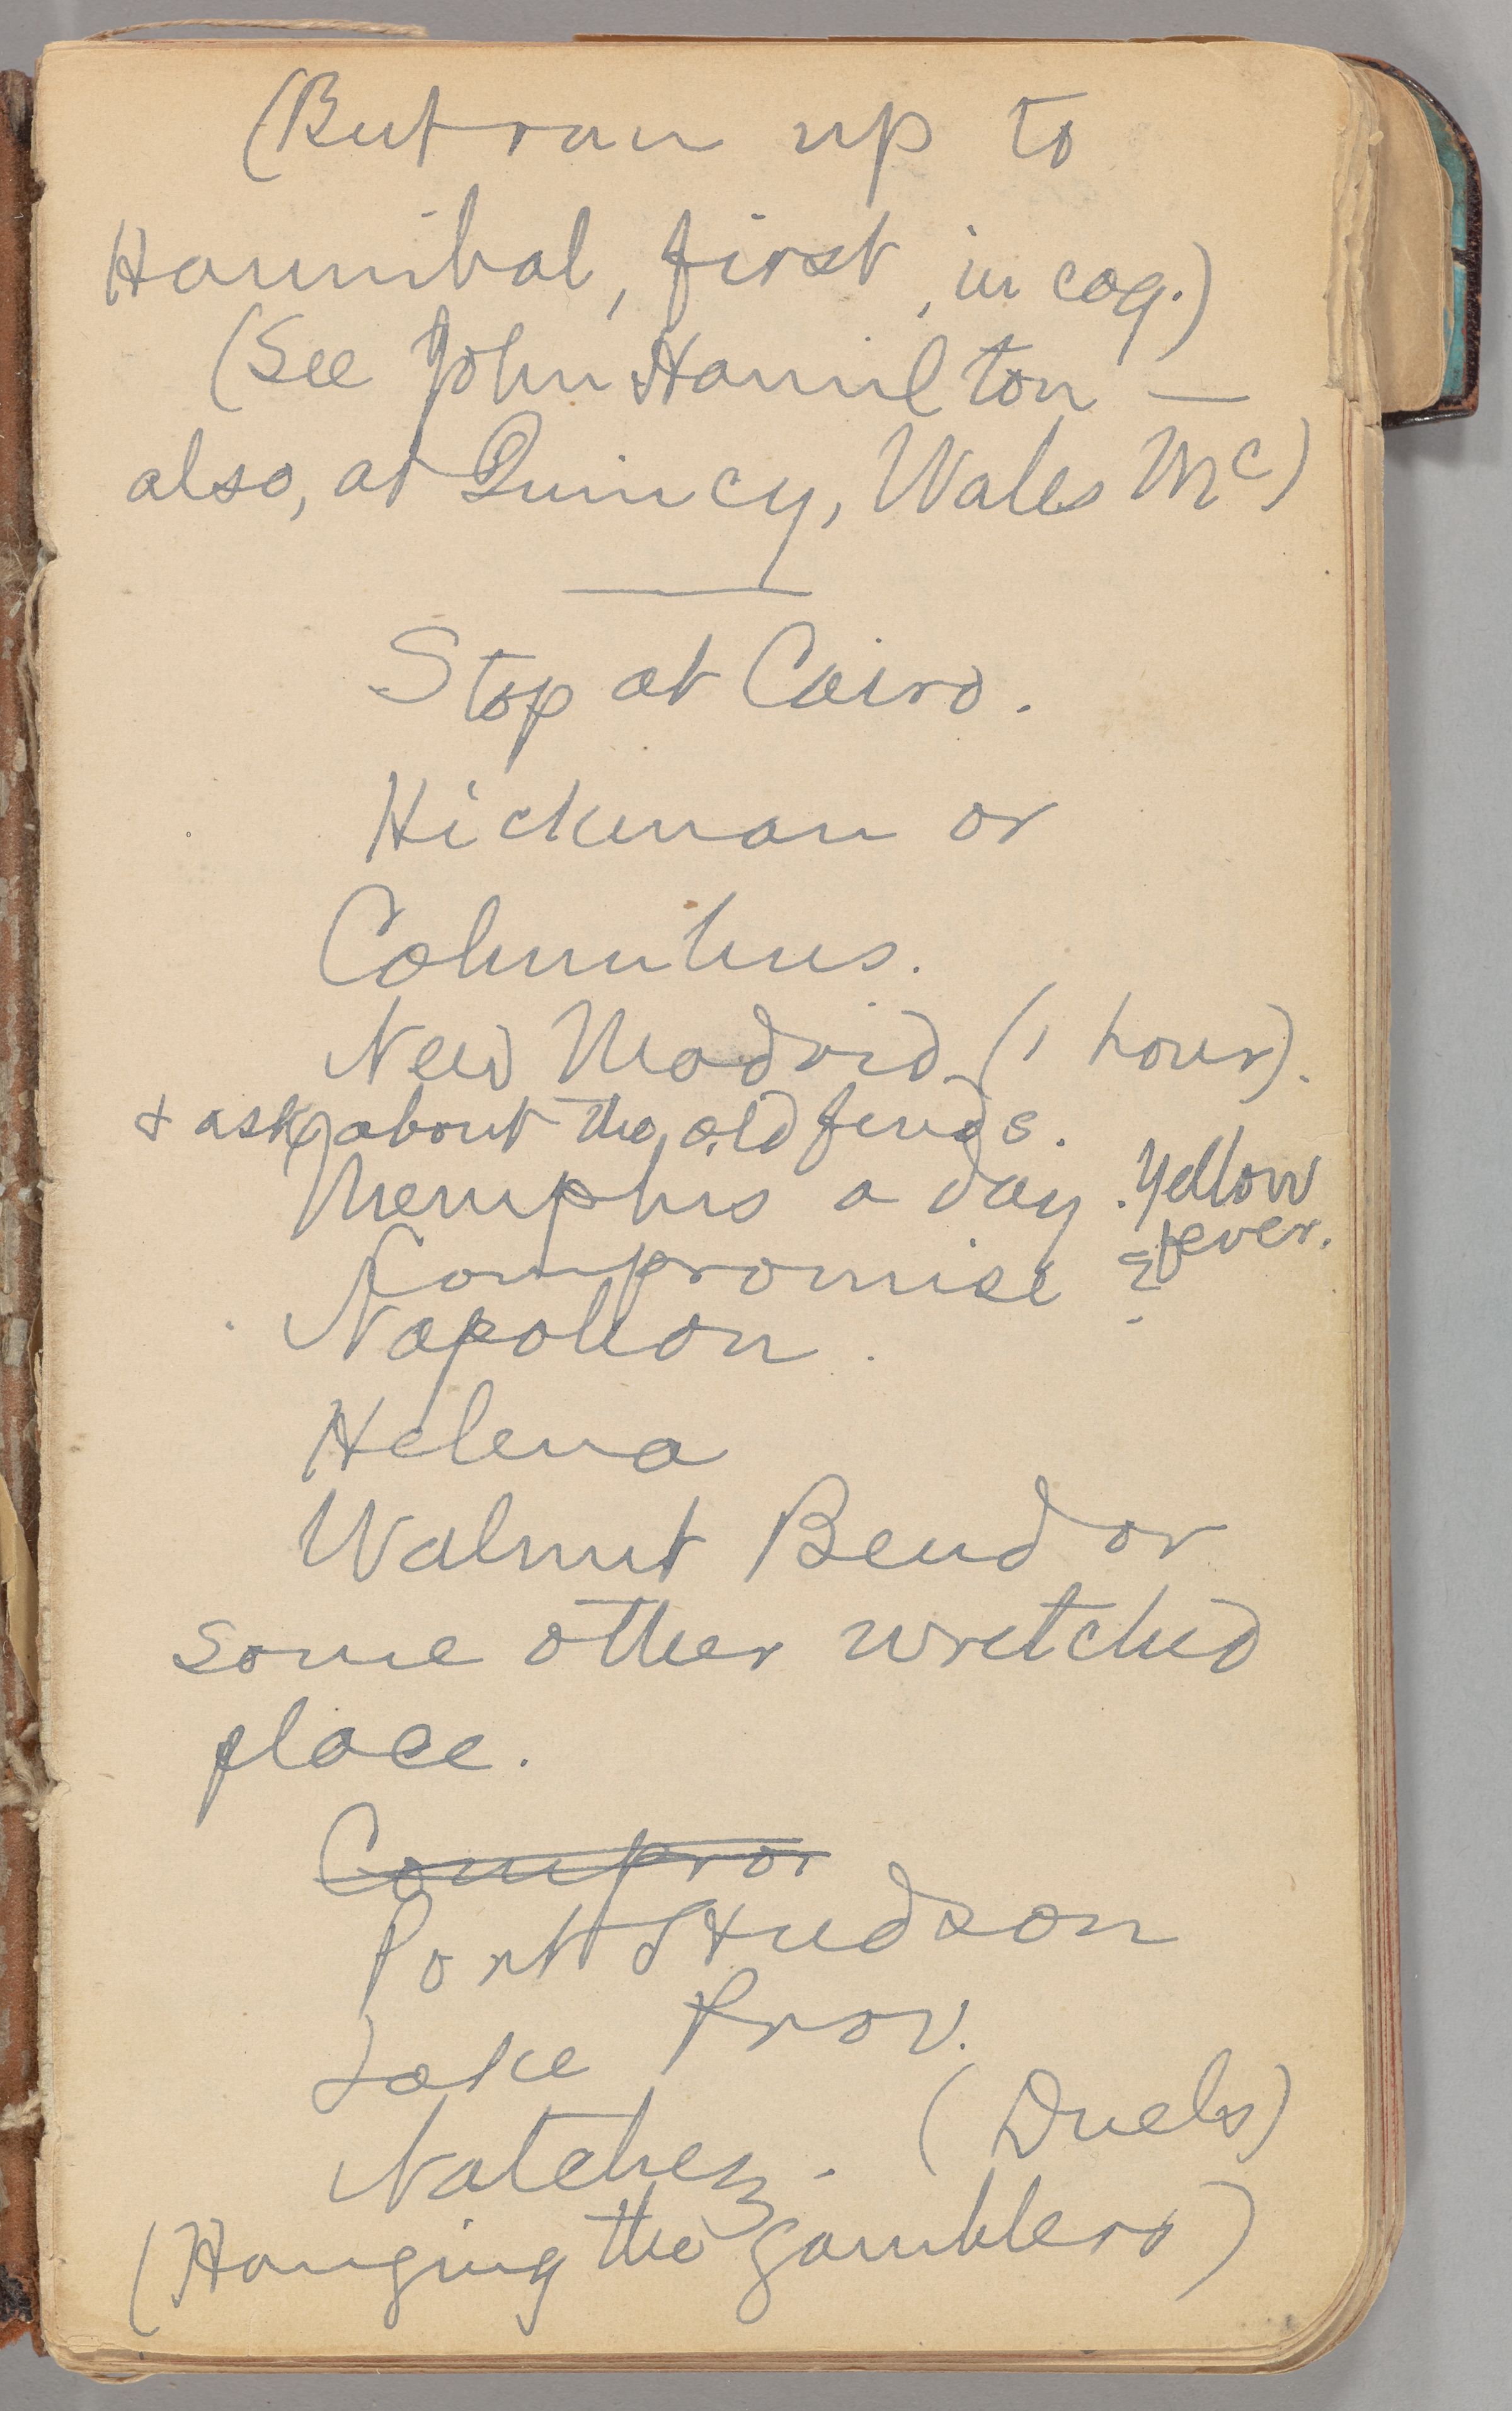 (But run up to
Hannibal, first, in cog.)
(See John Hamilton —
also, at Quincy, Wales Mc)
Stop at Cairo.
Hickman or
Columbus.
New Madrid (1 hour).
& ask about the old feuds.
Memphis a day. Yellow
fever.
Compromise ?
Napoleon.
Helena
Walnut Bend or
some other wretched
place.
Compror
Port Hudson
Lake Prov.
Natchez. (Duels)
(Hanging the gamblers)